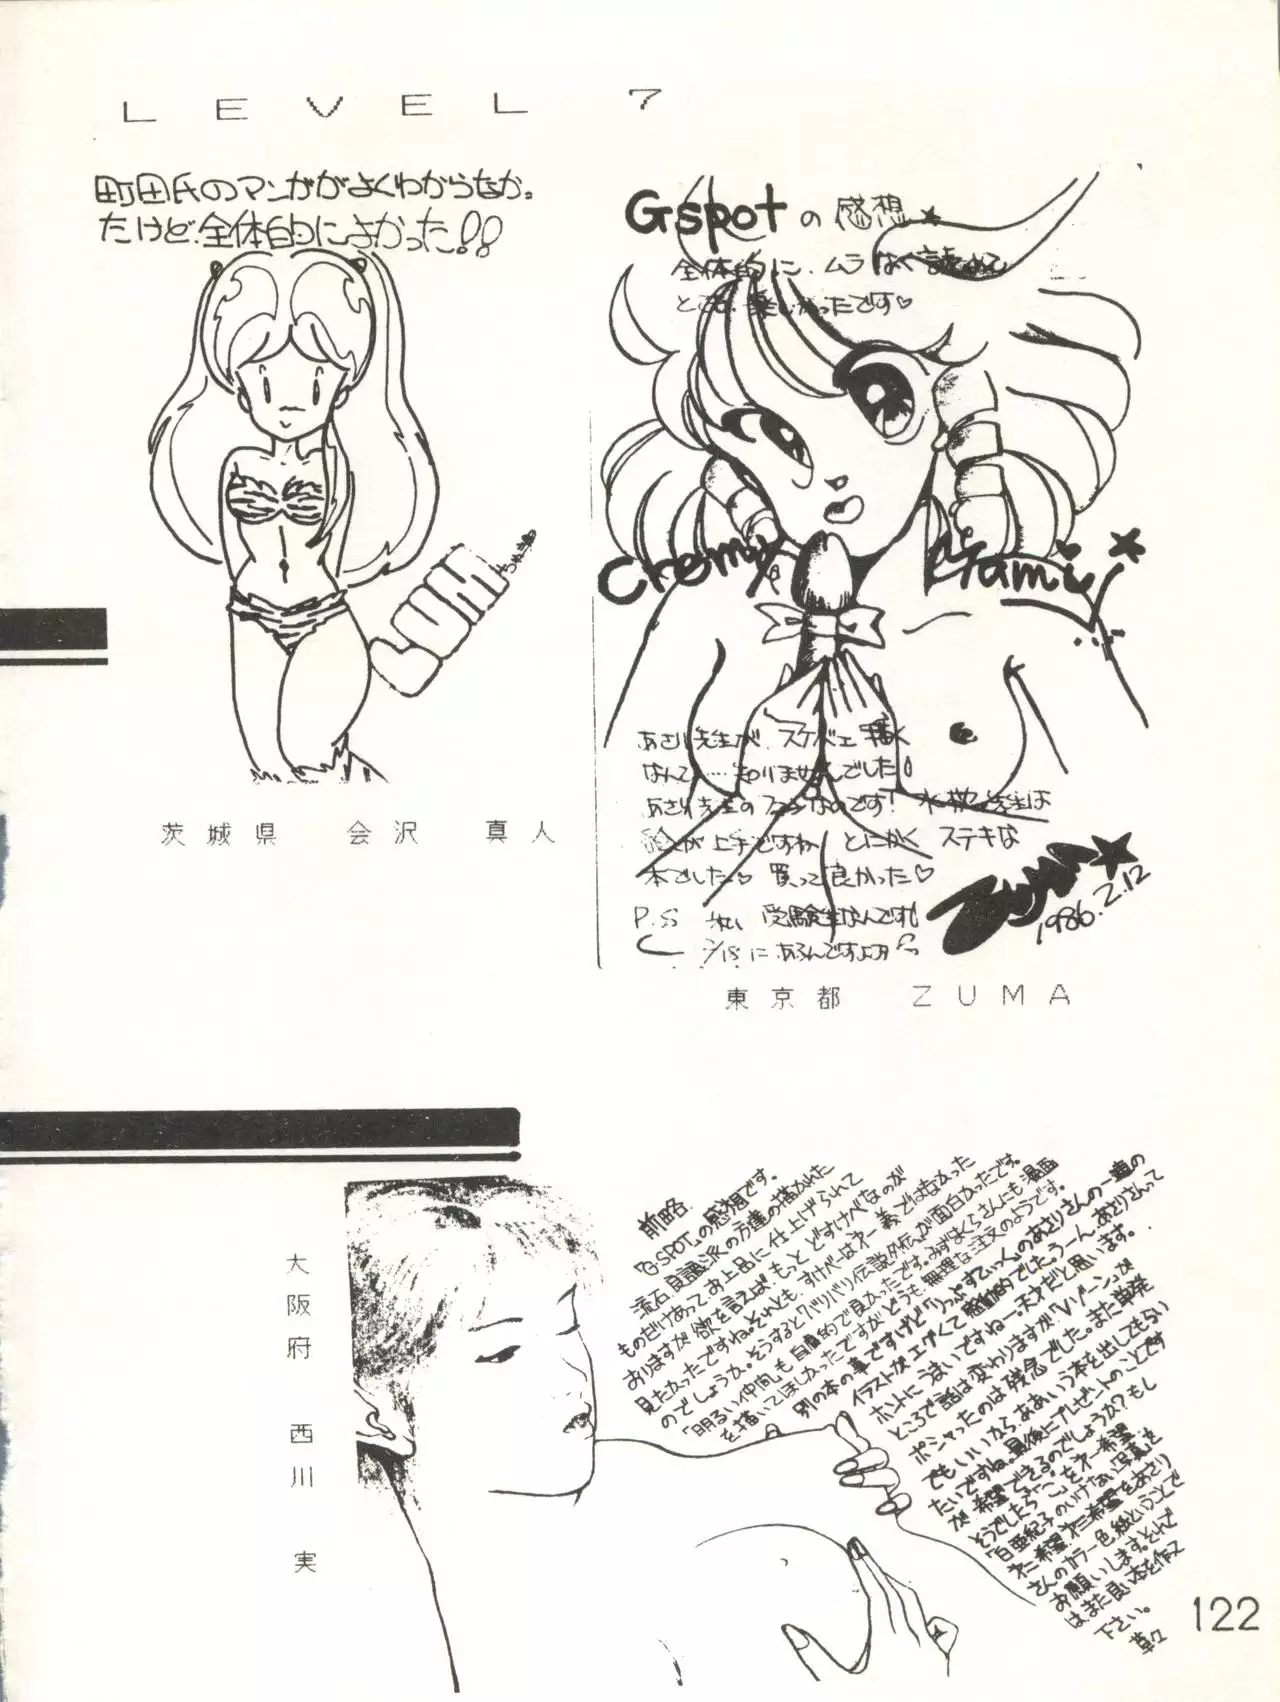 LEVEL 7
町田氏のマンガがよくわからなか。
たけど、全体的によかった!!
LUM
茨城県 会沢 真人
Gspotの感想★
全体的に、ムラなく読めて
とても楽しかったです♡
Creamy Mami
あさり先生が、スケベェ描く
なんて……知りませんでした!
あさり先生のファンなのです! 先生は
絵が上手ですね とにかく ステキな
本でした♡ 買って良かった♡
P.S 私 受験生なんです!
2/18にあるんですよ
ZUMA
1986.2.12
東京都 ZUMA
大阪府 西川 実
前略
『G・SPOT』の感想です。
流石良識派の方達の描かれた
ものだけあって、お上品に仕上げられて
おりますが欲を言えば、もっとどすけべなのが
見たかったですね。それとも、すけべーは才一義ではなかった
のでしょうか。そうすると『バリバリ伝説外伝』が面白かったです。
『明るい仲間』も自虐的で良かったです。みずまくらさんにも漫画
を描いてほしかったですがどうも無理な注文のようです。
別の本の事ですけど『りっぷすてぃっく』のあさりさんの一連の
イラストがエグくて感動的でしたうーん、あさりさんって
ホントにうまいですねー天才だと思います。
ところで話は変わりますが『Vゾーン』が
ポシャったのは残念でした。また単発
でもいいからああいう本を出してもらい
たいですね。最後にプレゼントのことです
が希望できるのでしょうか?もし
そうでしたら「こ」を才一希望
「白亜紀子のいけない写真」を
才二希望、才三希望をあさり
さんのカラー色紙ということで
お願いします。それで
はまた良い本を作って
下さい。
草々
122